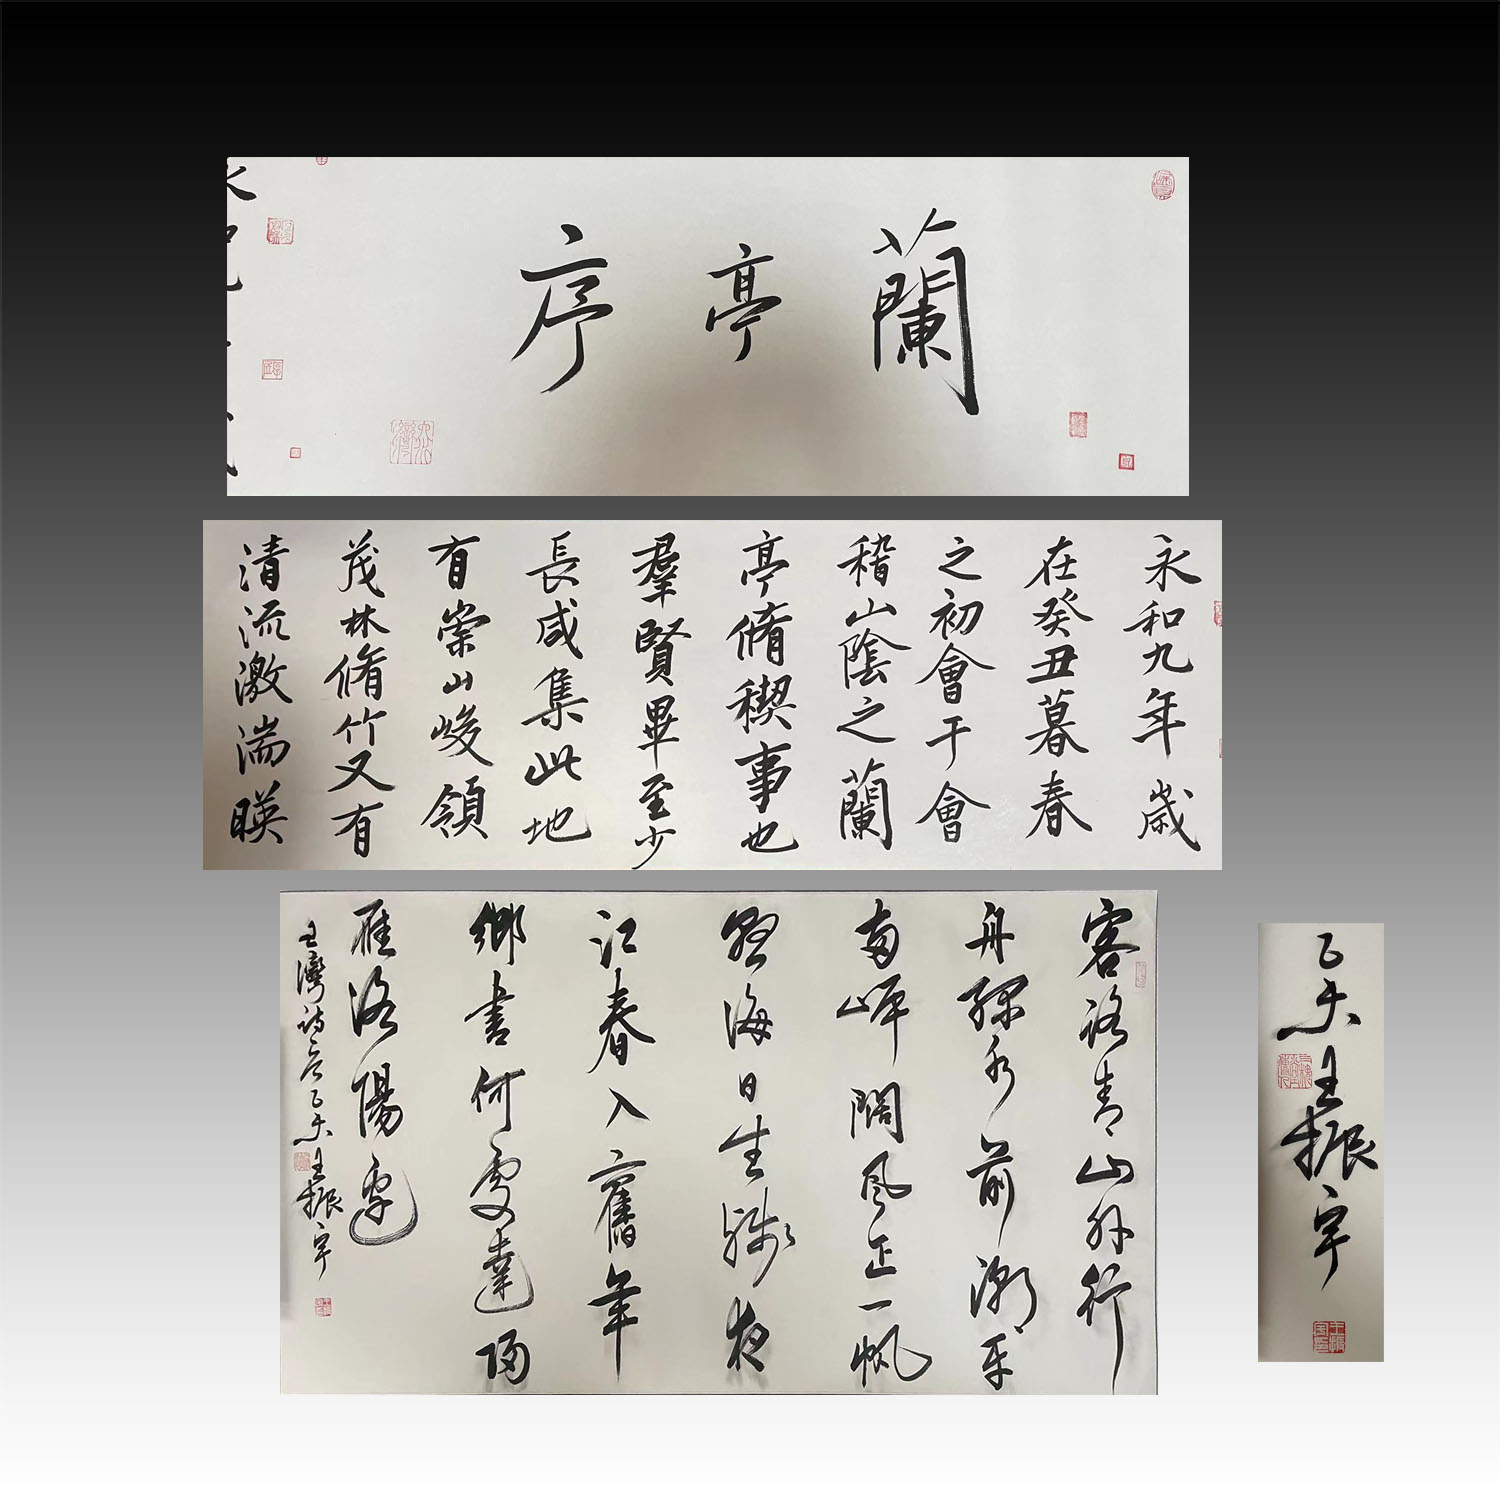 蘭亭序
永和九年歲
在癸丑暮春
之初會于會
稽山陰之蘭
亭脩稧事也
羣賢畢至少
長咸集此地
有崇山峻領
茂林脩竹又有
清流激湍暎
客路青山外行
舟綠水前潮平
兩岸闊風正一帆
懸海日生殘夜
江春入舊年
鄉書何處達歸
雁洛陽邊
王灣詩乙未王振宇
乙未王振宇